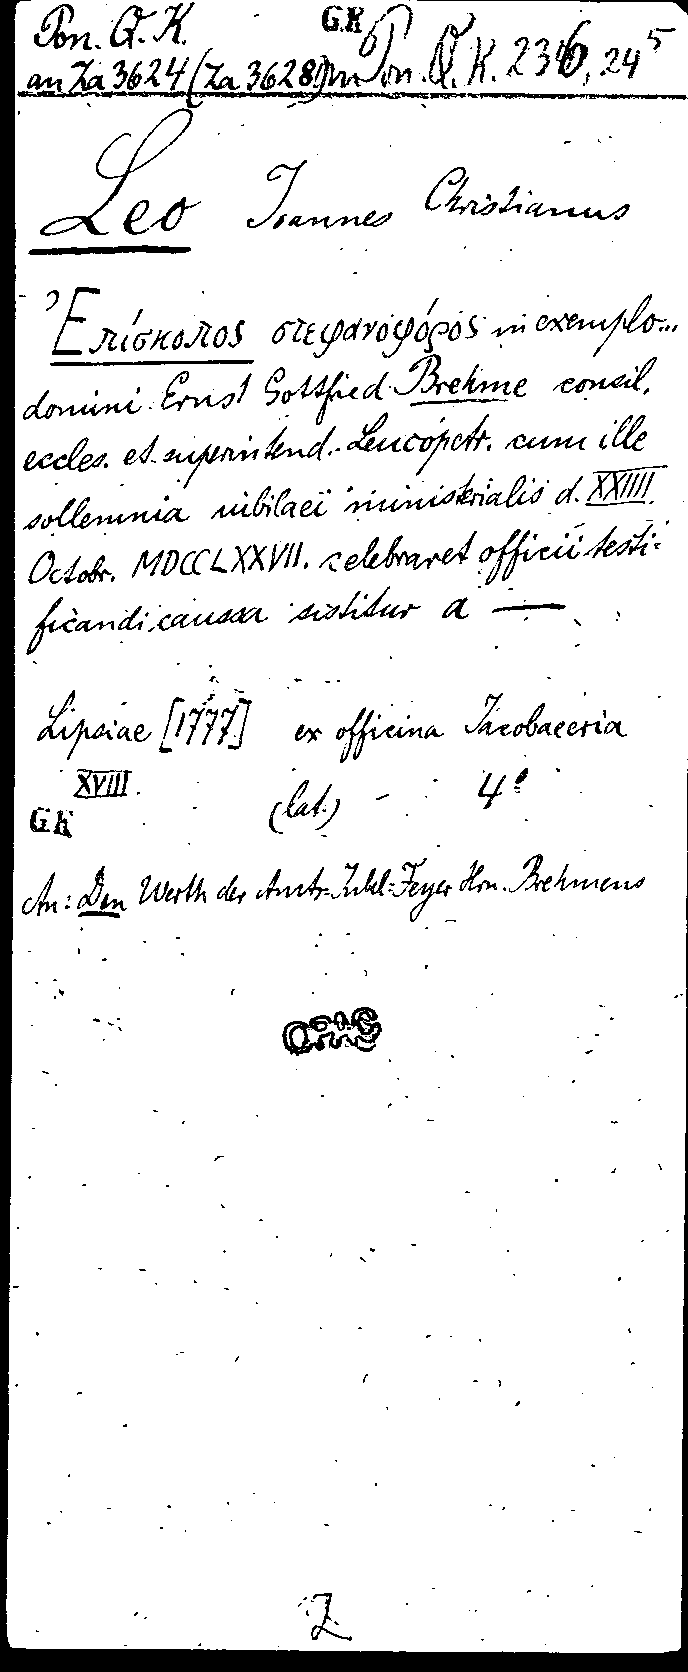 Pon. Q. K. G.K
an Za 3624 (Za 3628) Pon. Q. K. 236, 24⁵
Leo Joannes Christianus
Ἐπίσκοπος στεφανοφόρος in exemplo...
domini Ernst Gottfried Brehme consil.
eccles. et superintend. Leucopetr. cum ille
sollemnia iubilaei ministerialis d. XXIIII
Octobr. MDCCLXXVII. celebraret officii testi-
ficandi caussa sistitur a —
Lipsiae [1777] ex officina Jacobaeeria
XVIII. (lat.) - 4°
GK
An: Den Werth der Amts-Jubel-Feyer Hrn. Brehmens
Z